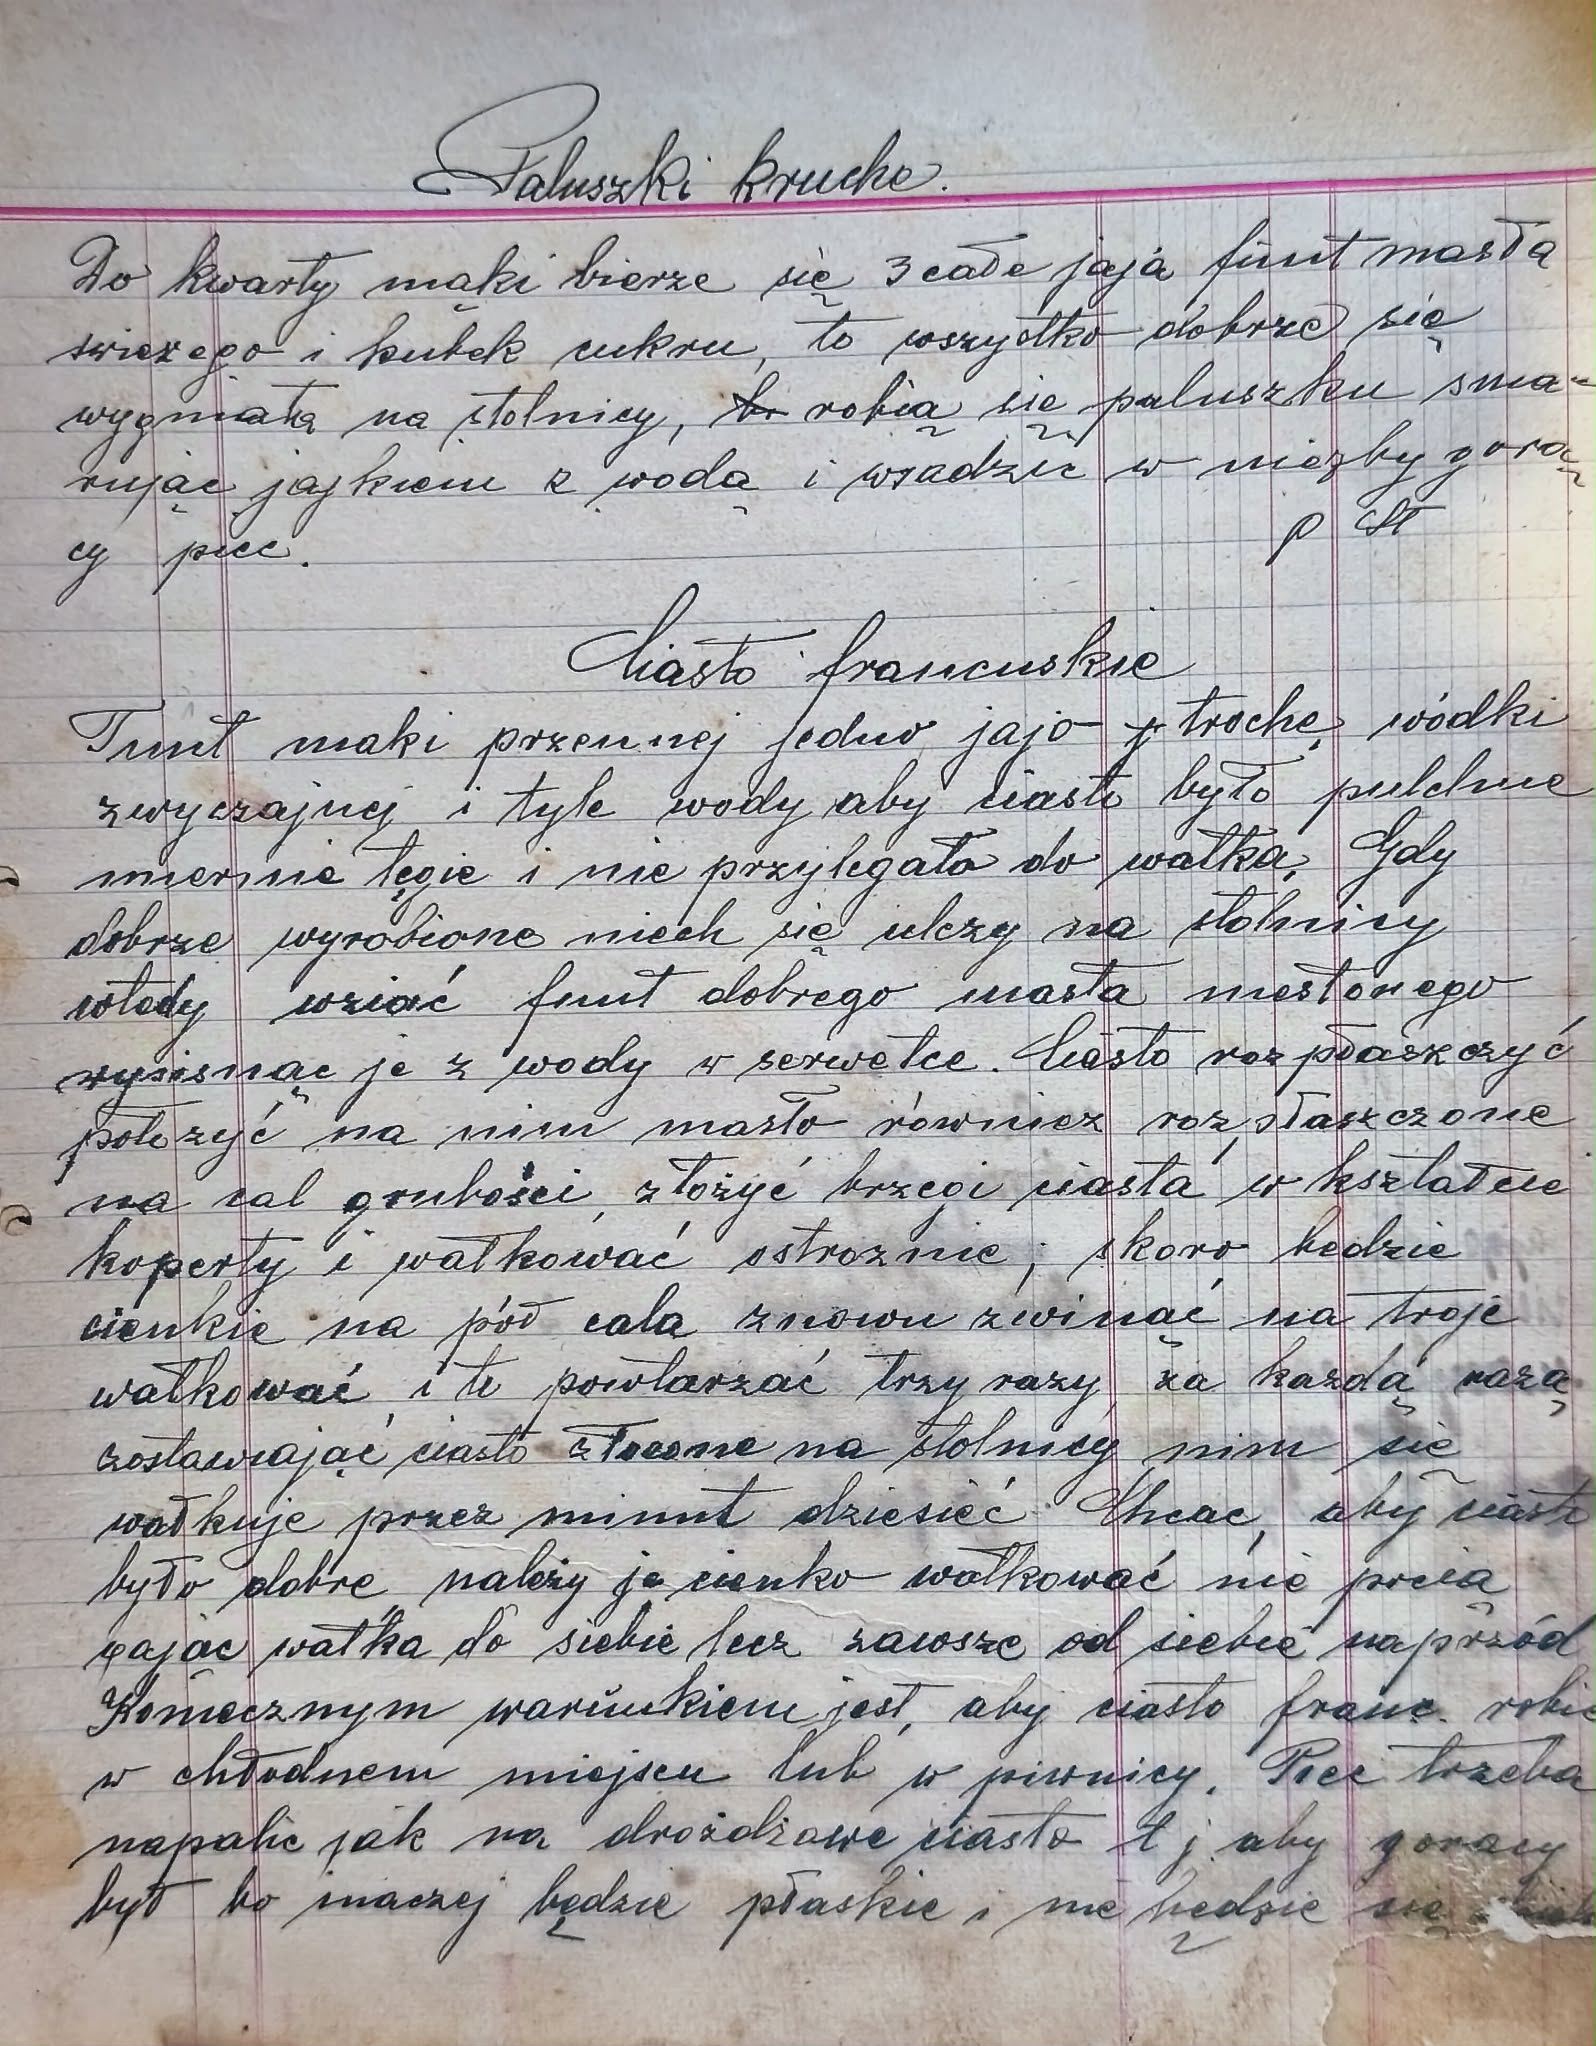 Paluszki kruche.
Do kwarty mąki bierze się 3 całe jaja funt masła
swieżego i kubek cukru, to wszystko dobrze się
wygniata na stolnicy, robią się paluszku sma-
rując jajkiem z wodą i wsadzić w niezby gorą
cy piec.
p St
Ciasto francuskie
Funt maki przennej jedno jajo trochę wódki
zwyczajnej i tyle wody aby ciasto było pulchne
miernie tęgie i nie przylegało do wałka, Gdy
dobrze wyrobione niech się uleży na stolnicy
wtedy wziąć funt dobrego masła niesłonego
wycisnąc je z wody w serwetce. Ciasto rozpłaszczyć
położyć na nim masło również rozpłaszczone
na cal grubości, złożyć brzegi ciasta w kształcie
koperty i wałkować ostroznie; skoro bedzie
cienkie na pół cala znowu zwinąć na troje
wałkować i to powtarzać trzy razy za kazdą razą
zostawiając ciasto złożone na stolnicy nim się
wałkuje przez minut dziesieć Chcac, aby ciasto
było dobre należy je cienko wałkować nie pocią
gając wałka do siebie lecz zawsze od siebie naprzód
Koniecznym warunkiem jest, aby ciasto franc. robić
w chłodnem miejscu lub w piwnicy. Piec trzeba
napalic jak na drożdżowe ciasto t j aby goracy
był bo inaczej będzie płaskie i nie będzie się